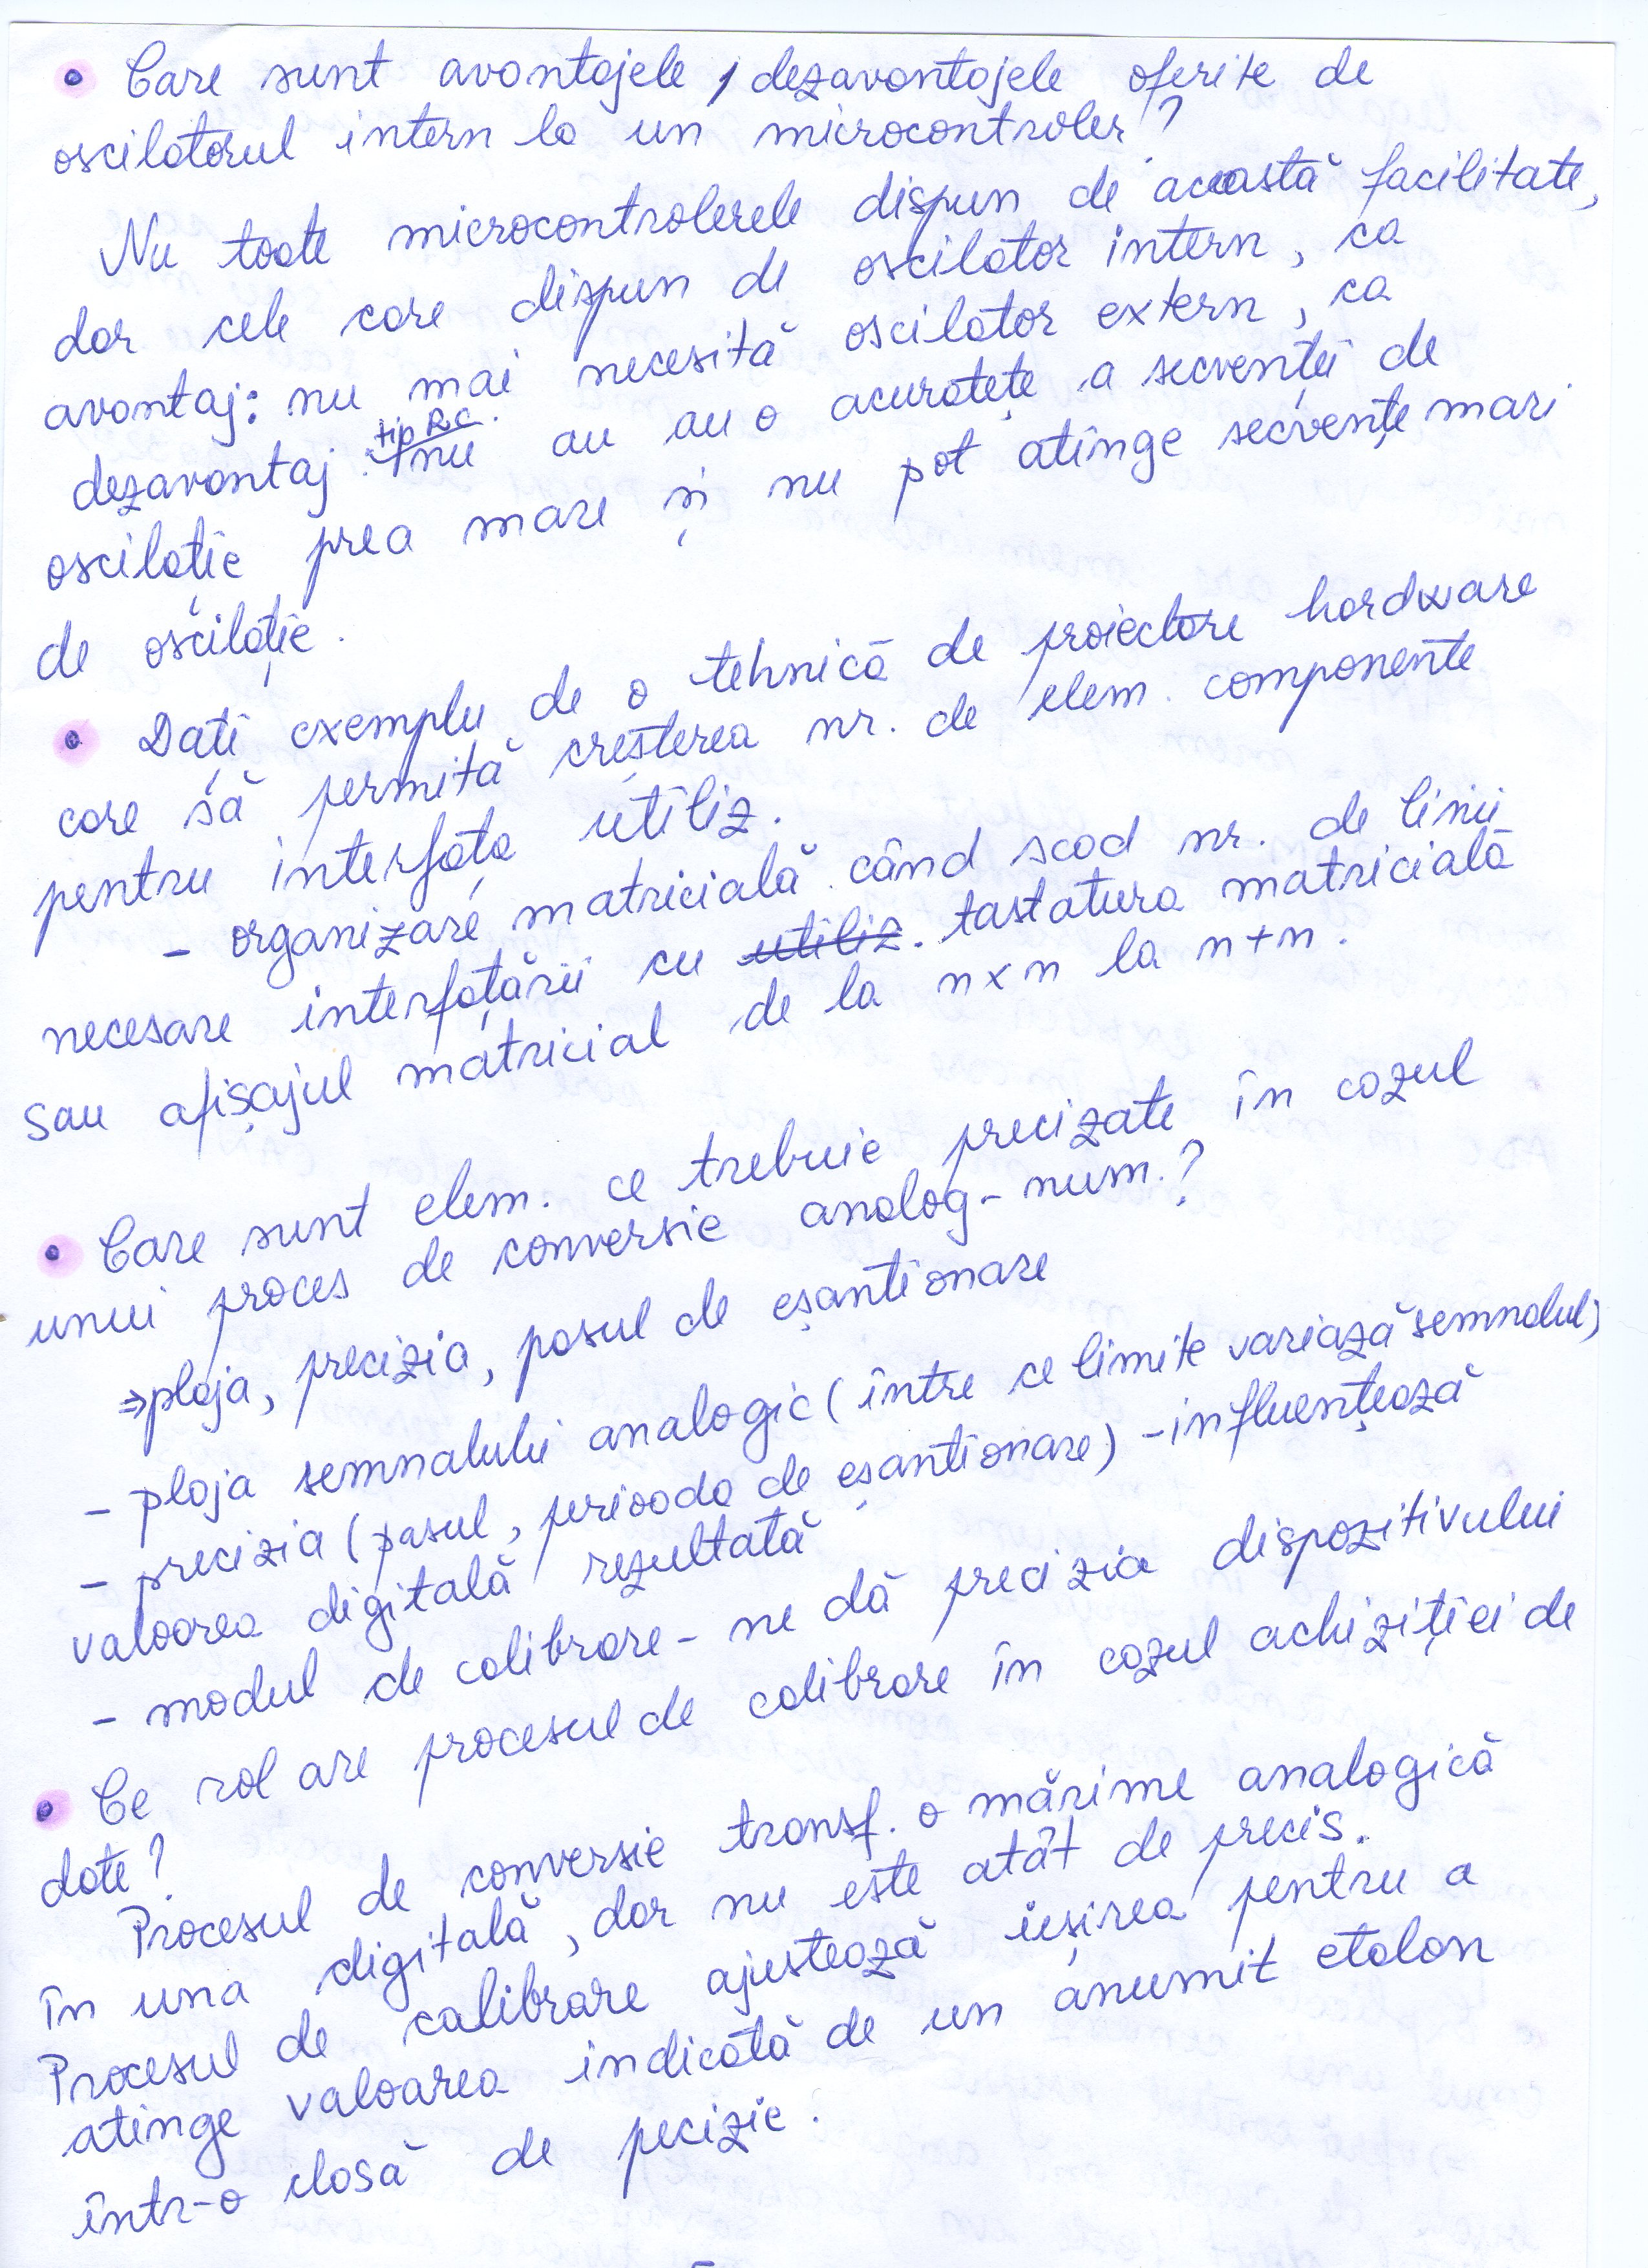 • Care sunt avantajele / dezavantajele oferite de
oscilatorul intern la un microcontroler?
Nu toate microcontrolerele dispun de această facilitate,
dar cele care dispun de oscilator intern, ca
avantaj: nu mai necesită oscilator extern, ca
dezavantaj: tip RC nu au au o acuratețe a secvenței de
oscilație prea mare și nu pot atinge secvențe mari
de oscilație.
• Dați exemplu de o tehnică de proiectare hardware
care să permită creșterea nr. de elem. componente
pentru interfața utiliz.
- organizare matricială când scad nr. de linii
necesare interfațării cu utiliz. tastatura matricială
sau afișajul matricial de la n×n la n+n.
• Care sunt elem. ce trebuie precizate în cazul
unui proces de conversie analog-num.?
⇒ plaja, precizia, pasul de eșantionare
- plaja semnalului analogic (între ce limite variază semnalul)
- precizia (pasul, perioada de eșantionare) - influențează
valoarea digitală rezultată
- modul de calibrare - ne dă precizia dispozitivului
• Ce rol are procesul de calibrare în cazul achiziției de
date?
Procesul de conversie transf. o mărime analogică
în una digitală, dar nu este atât de precis.
Procesul de calibrare ajustează ieșirea pentru a
atinge valoarea indicată de un anumit etalon
într-o clasă de pecizie.